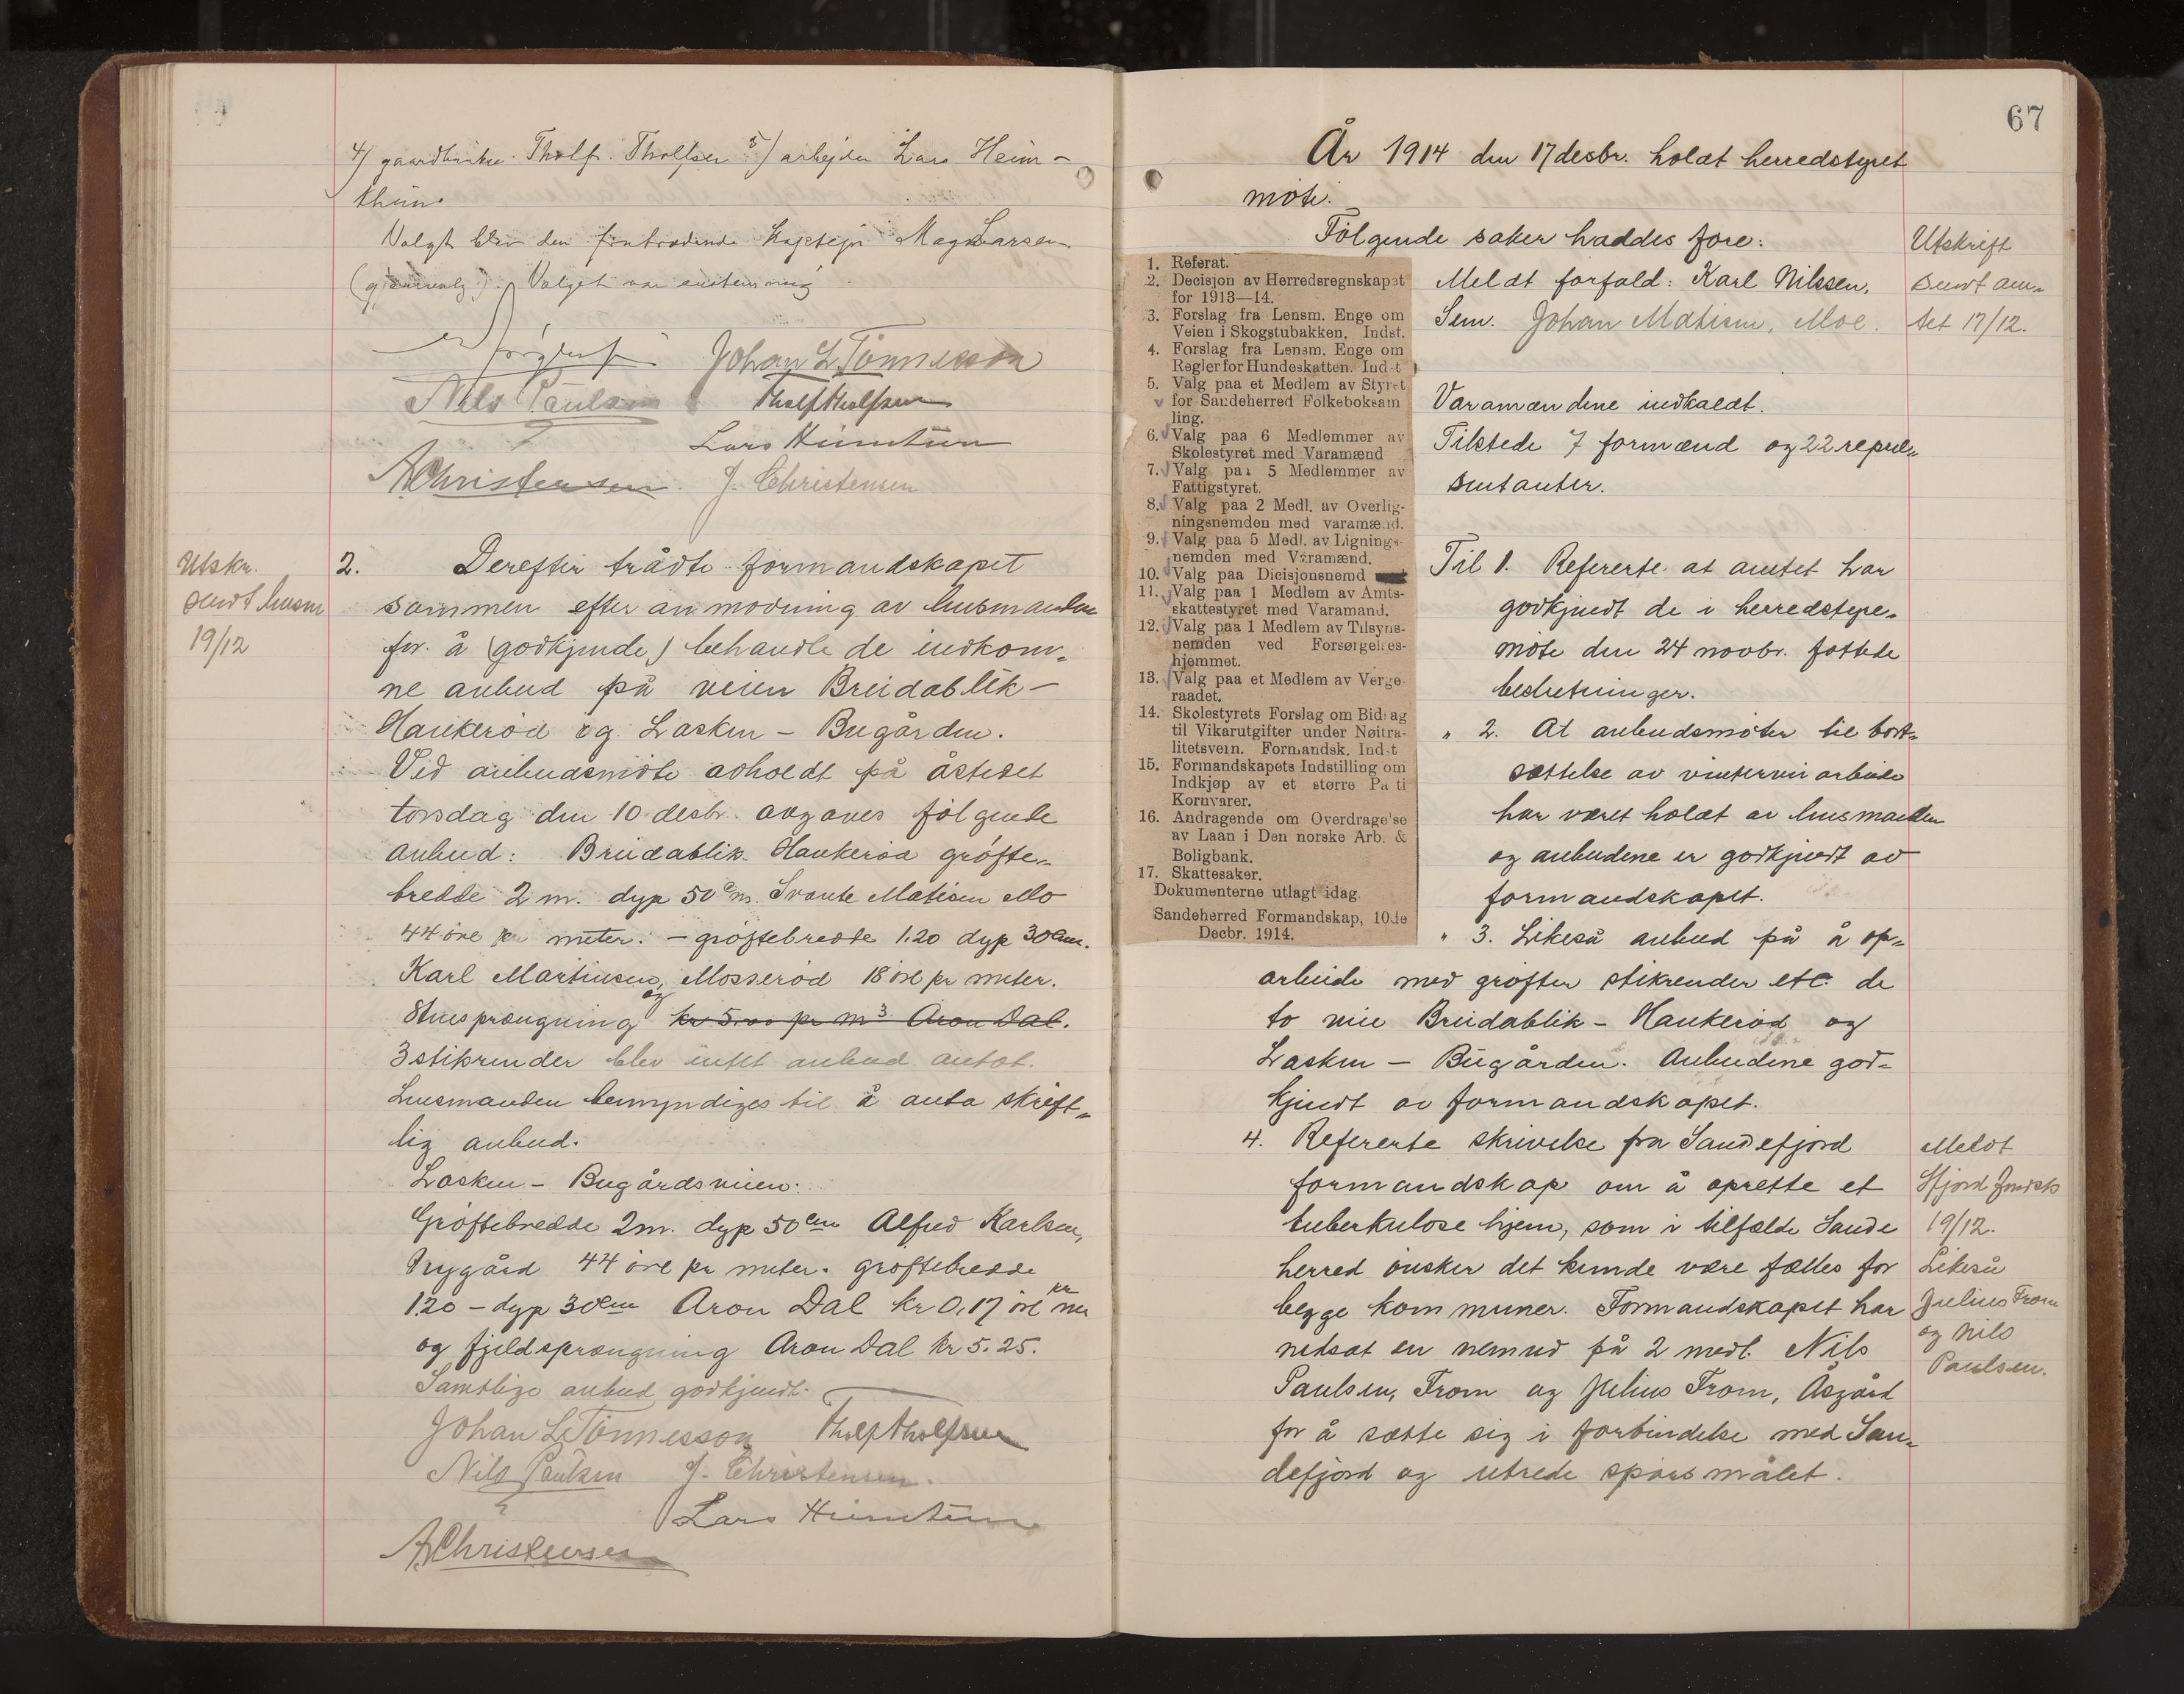 4) gaardbruker Tholf. Tholfsen 5) arbejder Lars Heim-
thun.
Valgt blev den fratrædende kaptejn Magn Larsen
(gjenvalg). Valget var enstemmig
Johan L Tönnesson
Nils Paulsen Tholf Tholfsen
Lars Heimtun
A Christensen J. Christensen
Utskr.
sendt lensm
19/12
2. Derefter trådte formandskapet
sammen efter anmodning av lensmanden
for å (godkjende) behandle de indkom-
ne anbud på veien Breidablik-
Haukeröd og Lasken - Bugården.
Ved anbudsmöte avholdt på åstedet
torsdag den 10 desbr. avgaves fölgende
anbud: Breidablik Haukeröd gröfte-
bredde 2 m. dyp 50 cm. Svante Matisen Mo
44 öre pr meter. - gröftebredde 1.20 dyp 30 cm.
Karl Martinsen, Mosseröd 18 öre pr meter.
Stensprængning og kr 5.00 pr m3 Aron Dal.
3 stikrender blev intet anbud antat.
Lensmanden bemyndiges til å anta skrift-
lig anbud.
Lasken - Bugårdsveien:
Gröftebredde 2 m. dyp 50 cm Alfred Karlsen,
Nygård 44 öre pr meter. gröftebredde
1.20 - dyp 30 cm Aron Dal kr 0,17 öre pr mer
og fjeldsprængning Aron Dal kr 5.25.
Samtlige anbud godkjendt.
Johan L Tönnesson Tholf Tholfsen
Nils Paulsen J. Christensen.
Lars Heimtun
A Christensen
67
År 1914 den 17 desbr. holdt herredstyret
möte.
Fölgende saker haddes fore:
1. Referat.
2. Decisjon av Herredsregnskapet
for 1913—14.
3. Forslag fra Lensm. Enge om
Veien i Skogstubakken. Indst.
4. Forslag fra Lensm. Enge om
Regler for Hundeskatten. Indst
5. Valg paa et Medlem av Styret
for Sandeherred Folkeboksam
ling.
6. Valg paa 6 Medlemmer av
Skolestyret med Varamænd
7. Valg paa 5 Medlemmer av
Fattigstyret.
8. Valg paa 2 Medl. av Overlig-
ningsnemden med varamænd.
9. Valg paa 5 Medl. av Lignings-
nemden med Varamænd.
10. Valg paa Dicisjonsnemd
11. Valg paa 1 Medlem av Amts-
skattestyret med Varamand.
12. Valg paa 1 Medlem av Tilsyns-
nemden ved Forsørgelses-
hjemmet.
13. Valg paa et Medlem av Verge
raadet.
14. Skolestyrets Forslag om Bidrag
til Vikarutgifter under Nøitra-
litetsvern. Formandsk. Indst
15. Formandskapets Indstilling om
Indkjøp av et større Parti
Kornvarer.
16. Andragende om Overdragelse
av Laan i Den norske Arb. &
Boligbank.
17. Skattesaker.
Dokumenterne utlagt idag.
Sandeherred Formandskap, 10de
Decbr. 1914.
Meldt forfald: Karl Nilssen,
Sem. Johan Matisen, Moe.
Utskrift
sendt am-
tet 17/12.
Varamændene indkaldt.
Tilstede 7 formænd og 22 repræ-
sentanter.
Til 1. Referertes at amtet har
godkjendt de i herredstyre-
möte den 24 novbr. fattede
beslutninger.
" 2. At anbudsmöter til bort-
sættelse av vinterveiarbeide
har været holdt av lensmanden
og anbudene er godkjendt av
formandskapet.
" 3. Likeså anbud på å op-
arbeide med gröfter stikrender etc. de
to veie Breidablik - Haukeröd og
Lasken - Bugården. Anbudene god-
kjendt av formandskapet.
4. Referertes skrivelse fra Sandefjord
formandskap om å oprette et
tuberkulose hjem, som i tilfælde Sande
herred önsker det kunde være fælles for
begge kommuner. Formandskapet har
nedsat en nemnd på 2 medl. Nils
Paulsen, From og Julius From, Åsgård
for å sætte sig i forbindelse med San-
defjord og utrede spörsmålet.
Meldt
Sfjord fmdsk
19/12.
Likeså
Julius From
og Nils
Paulsen.